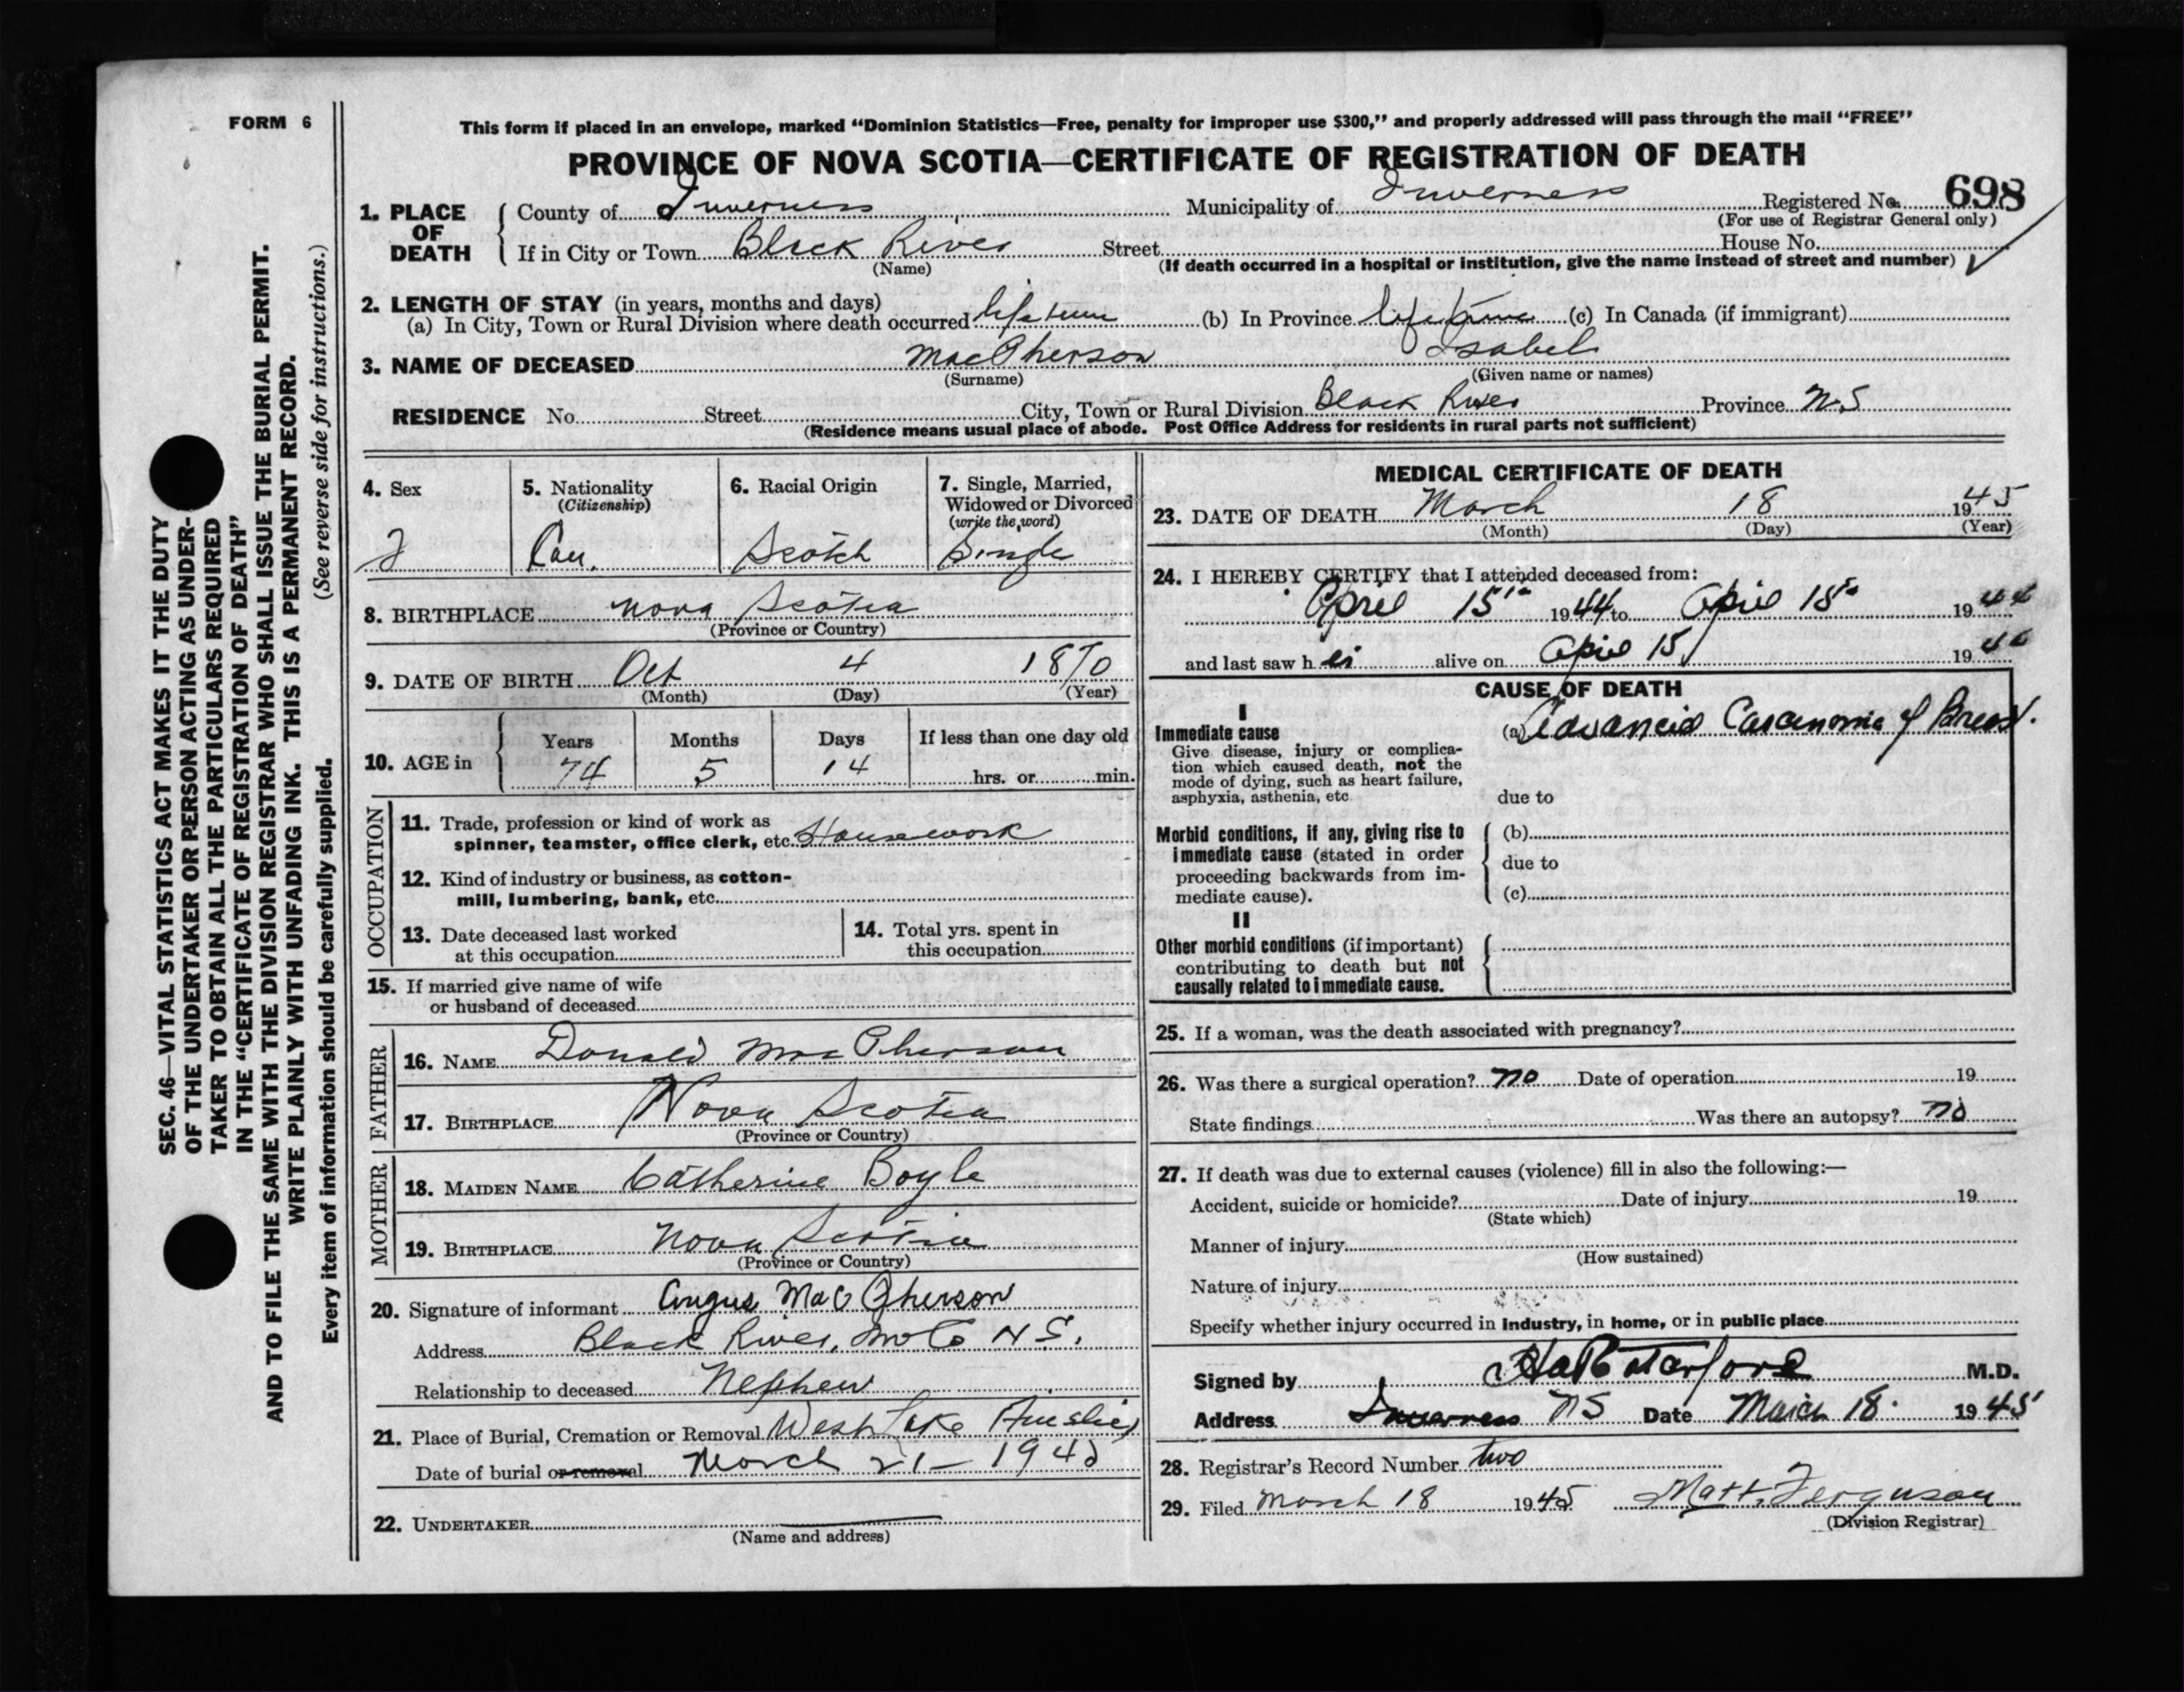 FORM 6
This form if placed in an envelope, marked “Dominion Statistics—Free, penalty for improper use $300,” and properly addressed will pass through the mail “FREE”
PROVINCE OF NOVA SCOTIA—CERTIFICATE OF REGISTRATION OF DEATH
SEC. 46—VITAL STATISTICS ACT MAKES IT THE DUTY
OF THE UNDERTAKER OR PERSON ACTING AS UNDER-
TAKER TO OBTAIN ALL THE PARTICULARS REQUIRED
IN THE “CERTIFICATE OF REGISTRATION OF DEATH”
AND TO FILE THE SAME WITH THE DIVISION REGISTRAR WHO SHALL ISSUE THE BURIAL PERMIT.
WRITE PLAINLY WITH UNFADING INK. THIS IS A PERMANENT RECORD.
Every item of information should be carefully supplied. (See reverse side for instructions.)
1. PLACE OF DEATH
County of Inverness Municipality of Inverness Registered No. 698
(For use of Registrar General only)
If in City or Town Black River Street House No.
(Name) (If death occurred in a hospital or institution, give the name instead of street and number)
2. LENGTH OF STAY (in years, months and days)
(a) In City, Town or Rural Division where death occurred lifetime (b) In Province lifetime (c) In Canada (if immigrant)
3. NAME OF DECEASED MacPherson Isabel
(Surname) (Given name or names)
RESIDENCE No. Street City, Town or Rural Division Black River Province N.S
(Residence means usual place of abode. Post Office Address for residents in rural parts not sufficient)
4. Sex
F
5. Nationality
(Citizenship)
Can.
6. Racial Origin
Scotch
7. Single, Married,
Widowed or Divorced
(write the word)
Single
8. BIRTHPLACE Nova Scotia
(Province or Country)
9. DATE OF BIRTH Oct 4 1870
(Month) (Day) (Year)
10. AGE in
Years Months Days If less than one day old
74 5 14 hrs. or min.
OCCUPATION
11. Trade, profession or kind of work as
spinner, teamster, office clerk, etc. Housework
12. Kind of industry or business, as cotton-
mill, lumbering, bank, etc.
13. Date deceased last worked
at this occupation
14. Total yrs. spent in
this occupation
15. If married give name of wife
or husband of deceased
FATHER
16. NAME Donald MacPherson
17. BIRTHPLACE Nova Scotia
(Province or Country)
MOTHER
18. MAIDEN NAME Catherine Boyle
19. BIRTHPLACE Nova Scotia
(Province or Country)
20. Signature of informant Angus MacPherson
Address Black River, N S.
Relationship to deceased Nephew
21. Place of Burial, Cremation or Removal West Lake Ainslie
Date of burial or removal March 21 – 1945
22. UNDERTAKER
(Name and address)
MEDICAL CERTIFICATE OF DEATH
23. DATE OF DEATH March 18 1945
(Month) (Day) (Year)
24. I HEREBY CERTIFY that I attended deceased from:
April 15th 1944 to April 15th 1944
and last saw her alive on April 15 1944
CAUSE OF DEATH
I
Immediate cause
Give disease, injury or complica-
tion which caused death, not the
mode of dying, such as heart failure,
asphyxia, asthenia, etc
(a) Advanced Carcinoma of Breast.
due to
Morbid conditions, if any, giving rise to
immediate cause (stated in order
proceeding backwards from im-
mediate cause).
(b)
due to
(c)
II
Other morbid conditions (if important)
contributing to death but not
causally related to immediate cause.
25. If a woman, was the death associated with pregnancy?
26. Was there a surgical operation? no Date of operation 19
State findings Was there an autopsy? no
27. If death was due to external causes (violence) fill in also the following:—
Accident, suicide or homicide? Date of injury 19
(State which)
Manner of injury
(How sustained)
Nature of injury
Specify whether injury occurred in industry, in home, or in public place
Signed by M.D.
Address Inverness NS Date March 18. 1945
28. Registrar's Record Number two
29. Filed March 18 1945 Matt. Ferguson
(Division Registrar)